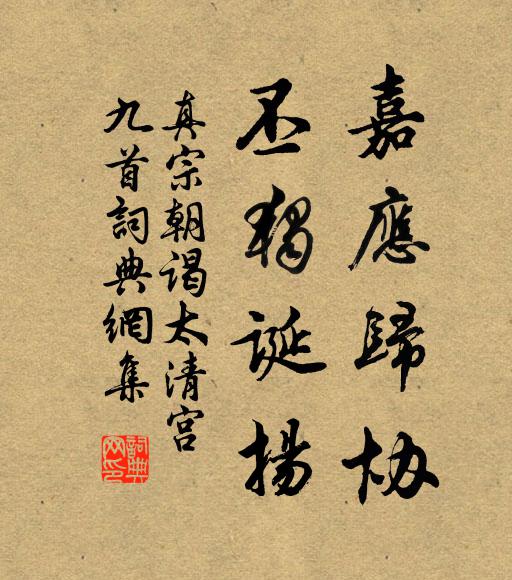 嘉應歸協
丕猲誕揚
真宗朝謁太清宮
九首詞典網集
詞典網印